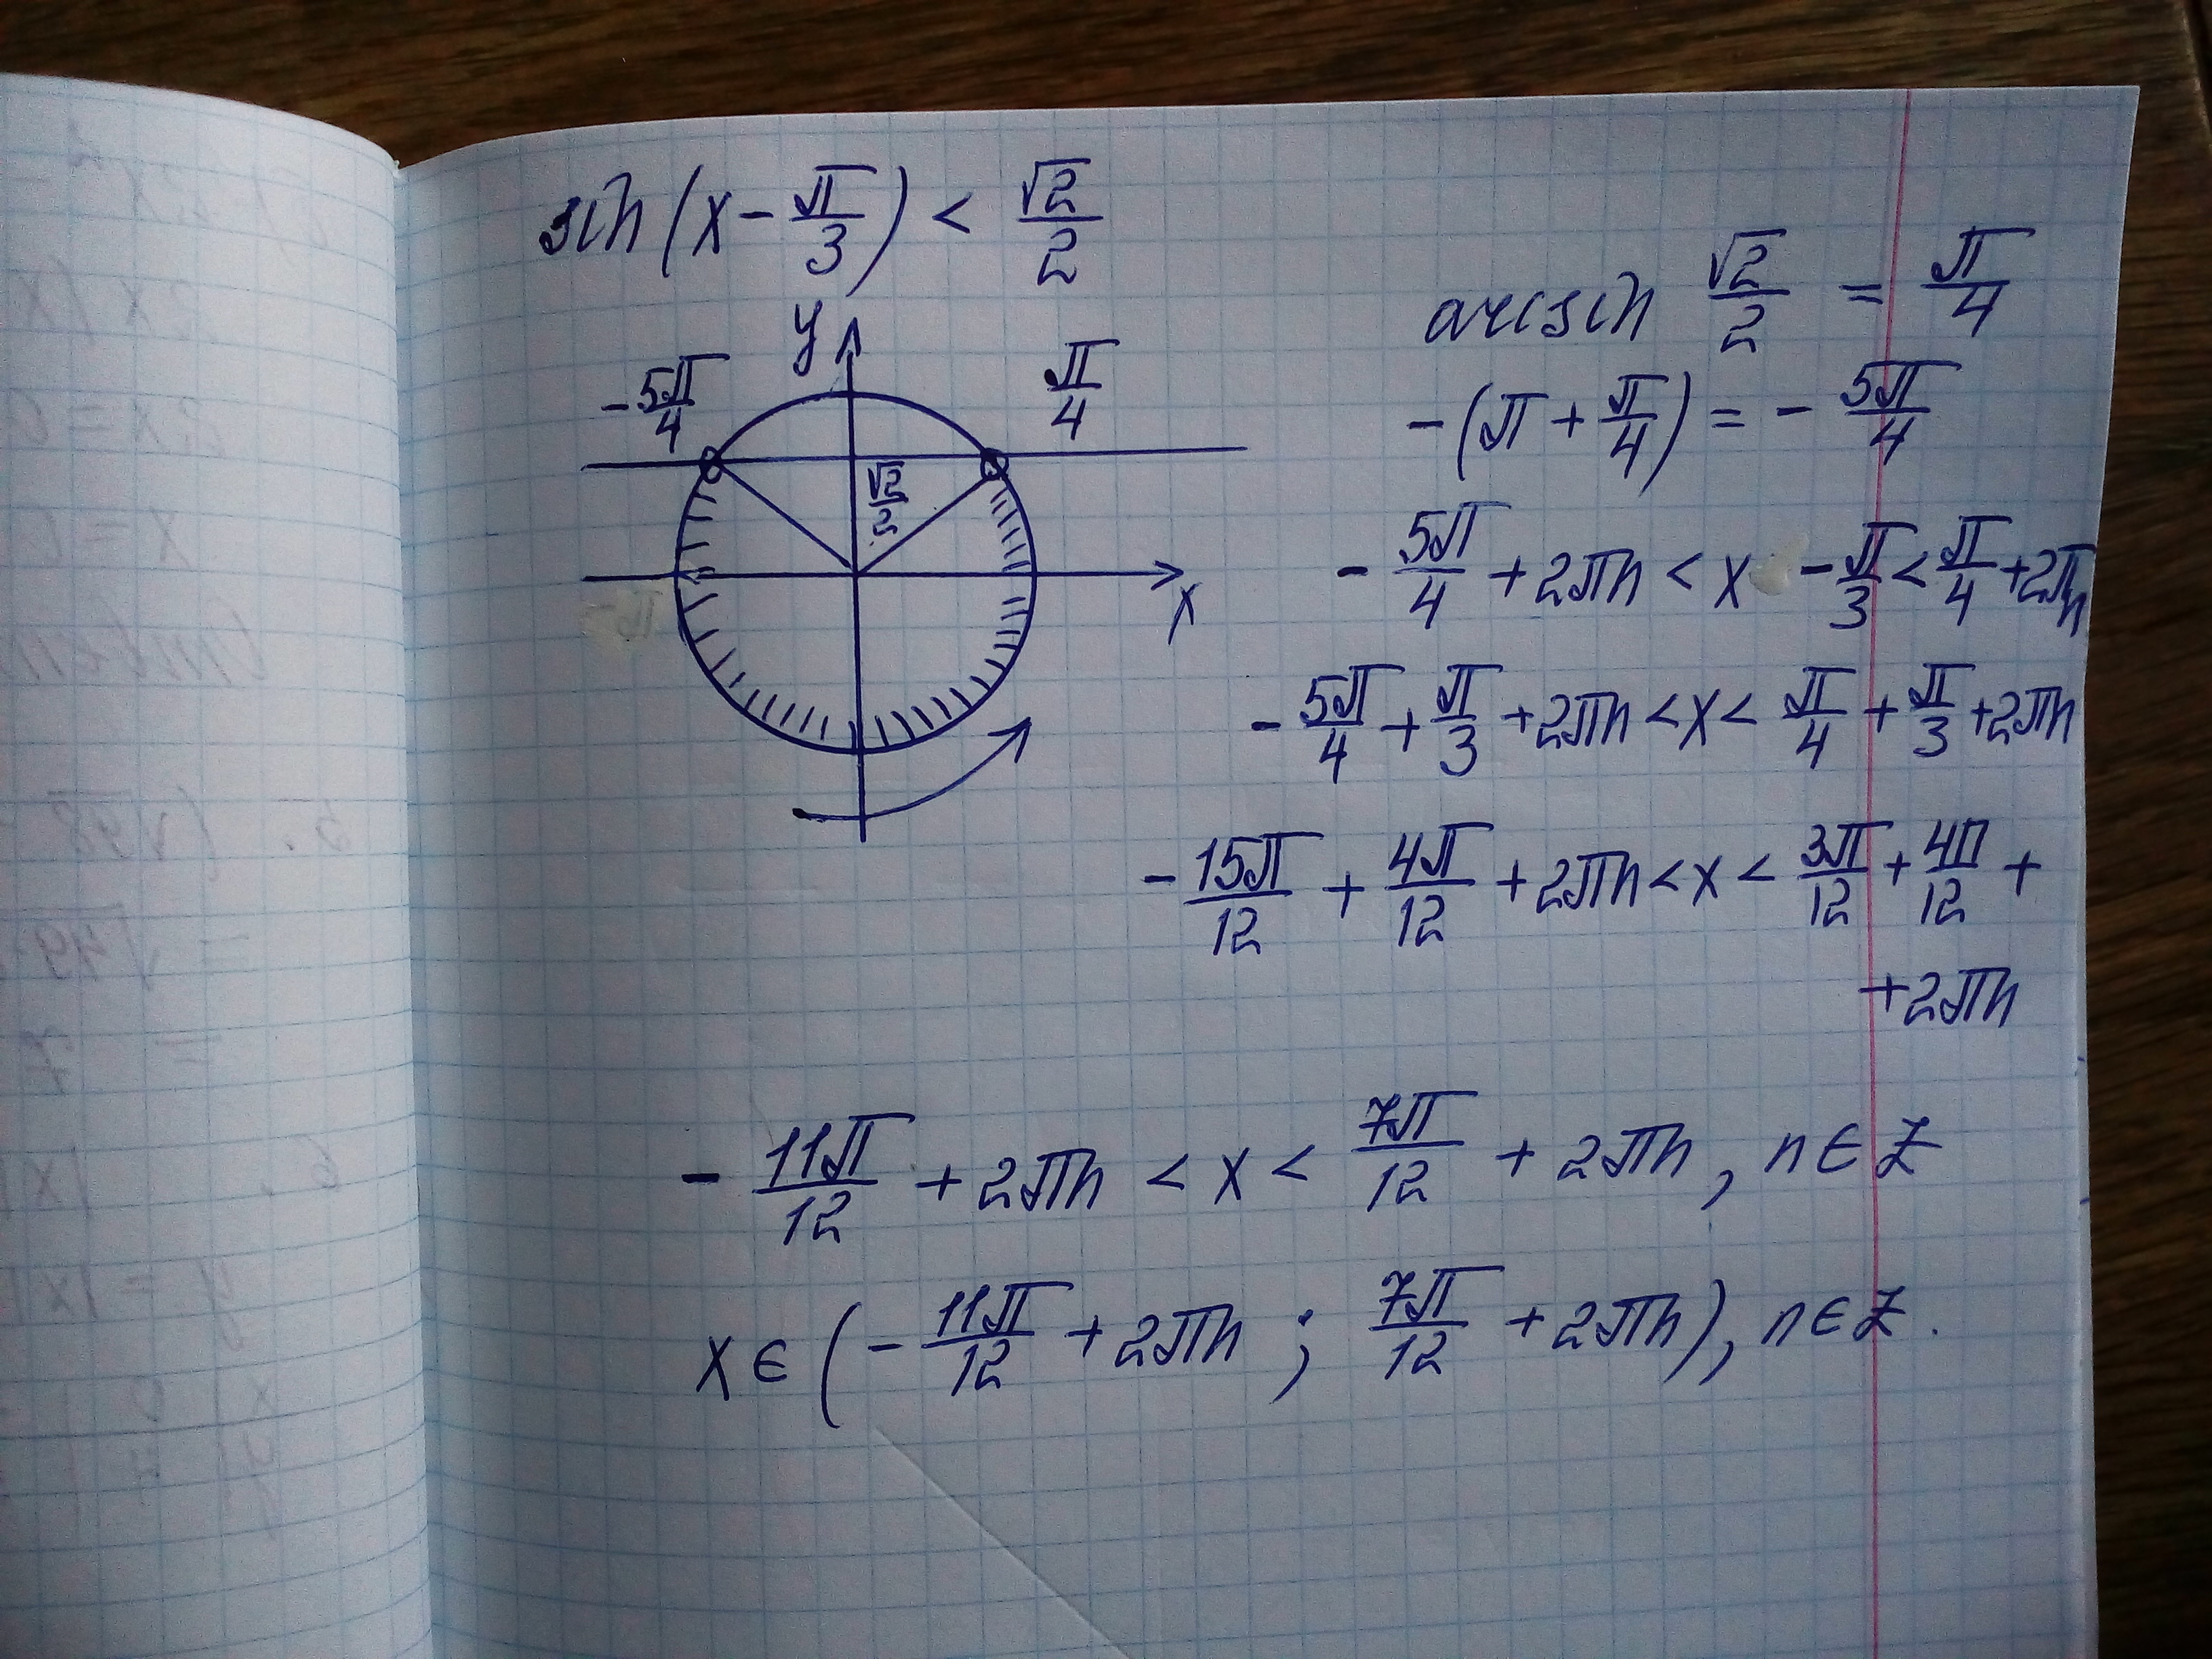 sin(x - π/3) < √2/2
y
-5π/4
π/4
√2/2
x
arcsin √2/2 = π/4
-(π + π/4) = - 5π/4
- 5π/4 + 2πn < x - π/3 < π/4 + 2πn
- 5π/4 + π/3 + 2πn < x < π/4 + π/3 + 2πn
- 15π/12 + 4π/12 + 2πn < x < 3π/12 + 4π/12 +
+ 2πn
- 11π/12 + 2πn < x < 7π/12 + 2πn, n ∈ Z
x ∈ (- 11π/12 + 2πn ; 7π/12 + 2πn), n ∈ Z.